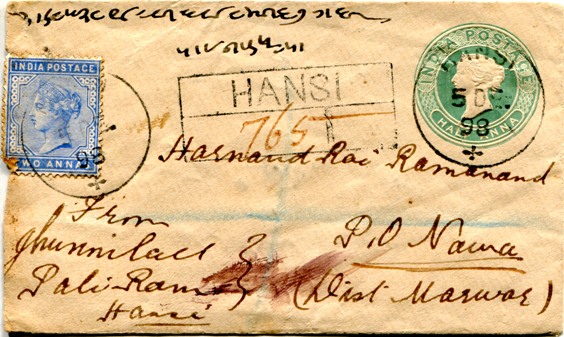 INDIA POSTAGE
TWO ANNAS
98
HANSI
765
INDIA POSTAGE
HALF ANNA
HANSI
5 DE
98
Harnand Rai Ramanand
P.O Nawa
(Dist Marwar)
From
Jhunnilall
Pali Ram
Hansi